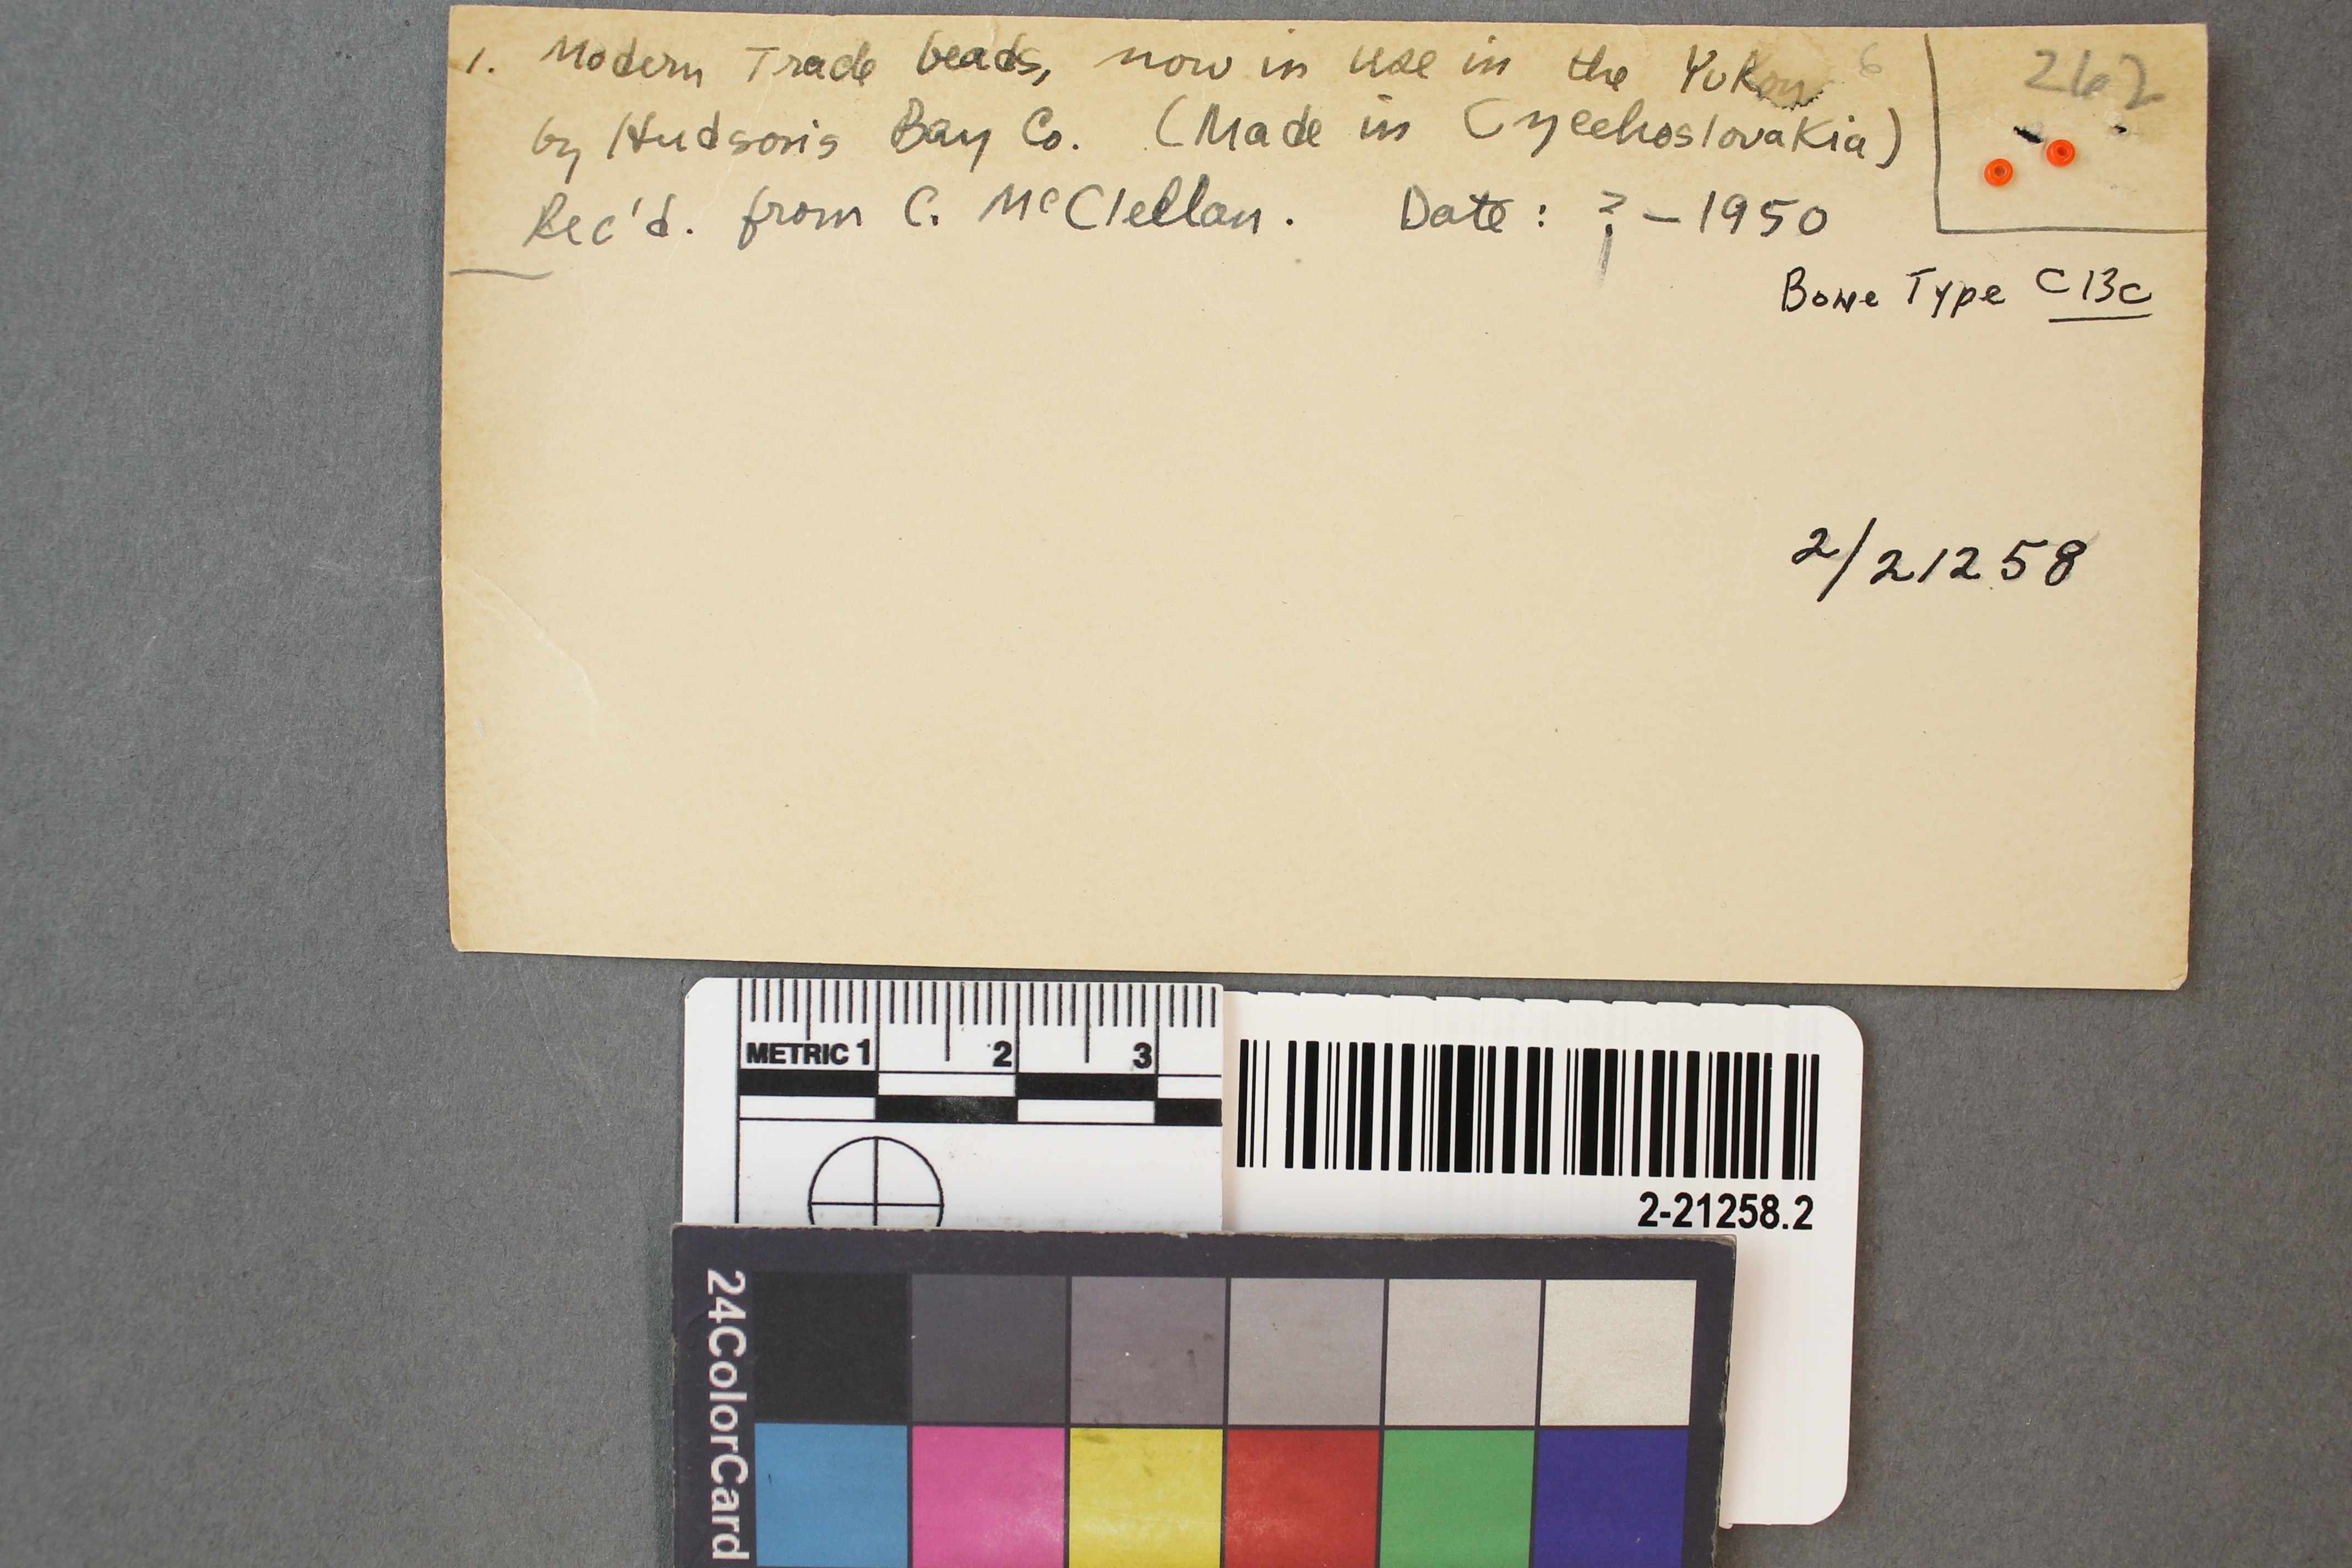 1. Modern Trade beads, now in use in the Yukon 6
262
by Hudson's Bay Co. (Made in Czechoslovakia)
Rec'd. from C. McClellan. Date: ? – 1950
Bone Type C13c
2/21258
METRIC 1 2 3
2-21258.2
24ColorCard